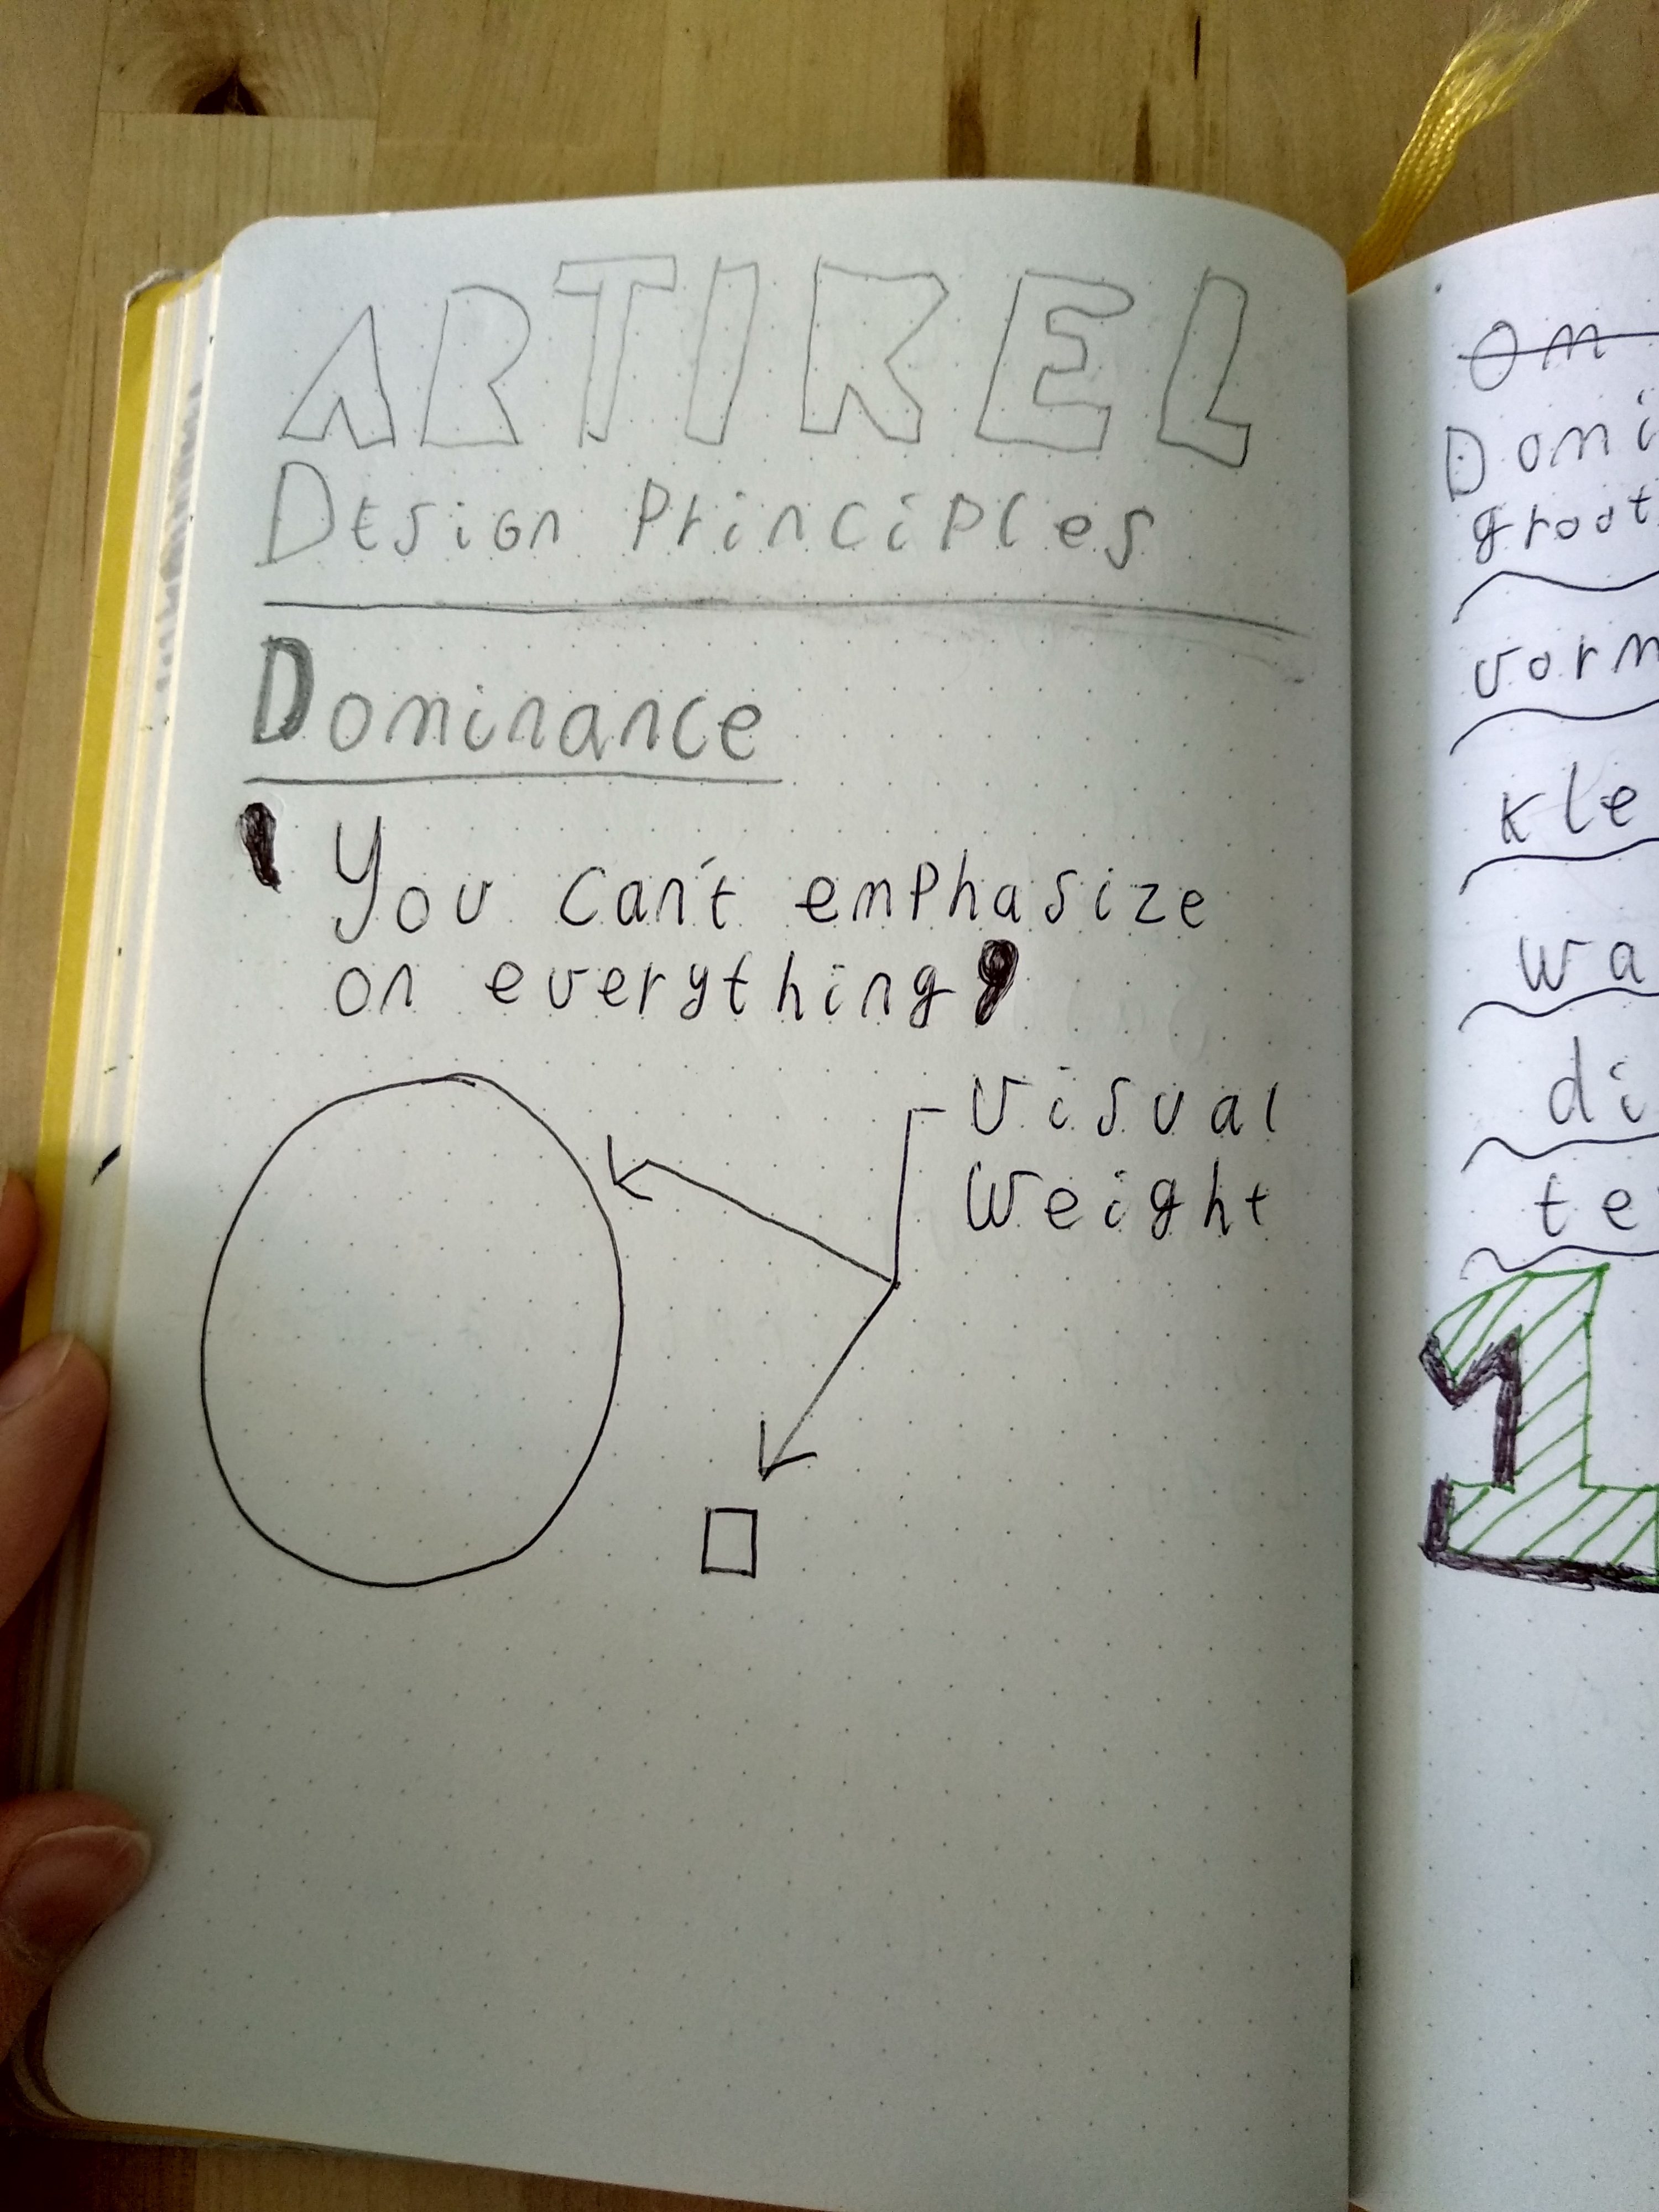 ARTIKEL
Design Principles
Dominance
' You can't emphasize
on everything '
Visual
Weight
Om
Domi
groot
vorm
kle
wa
di
te
1